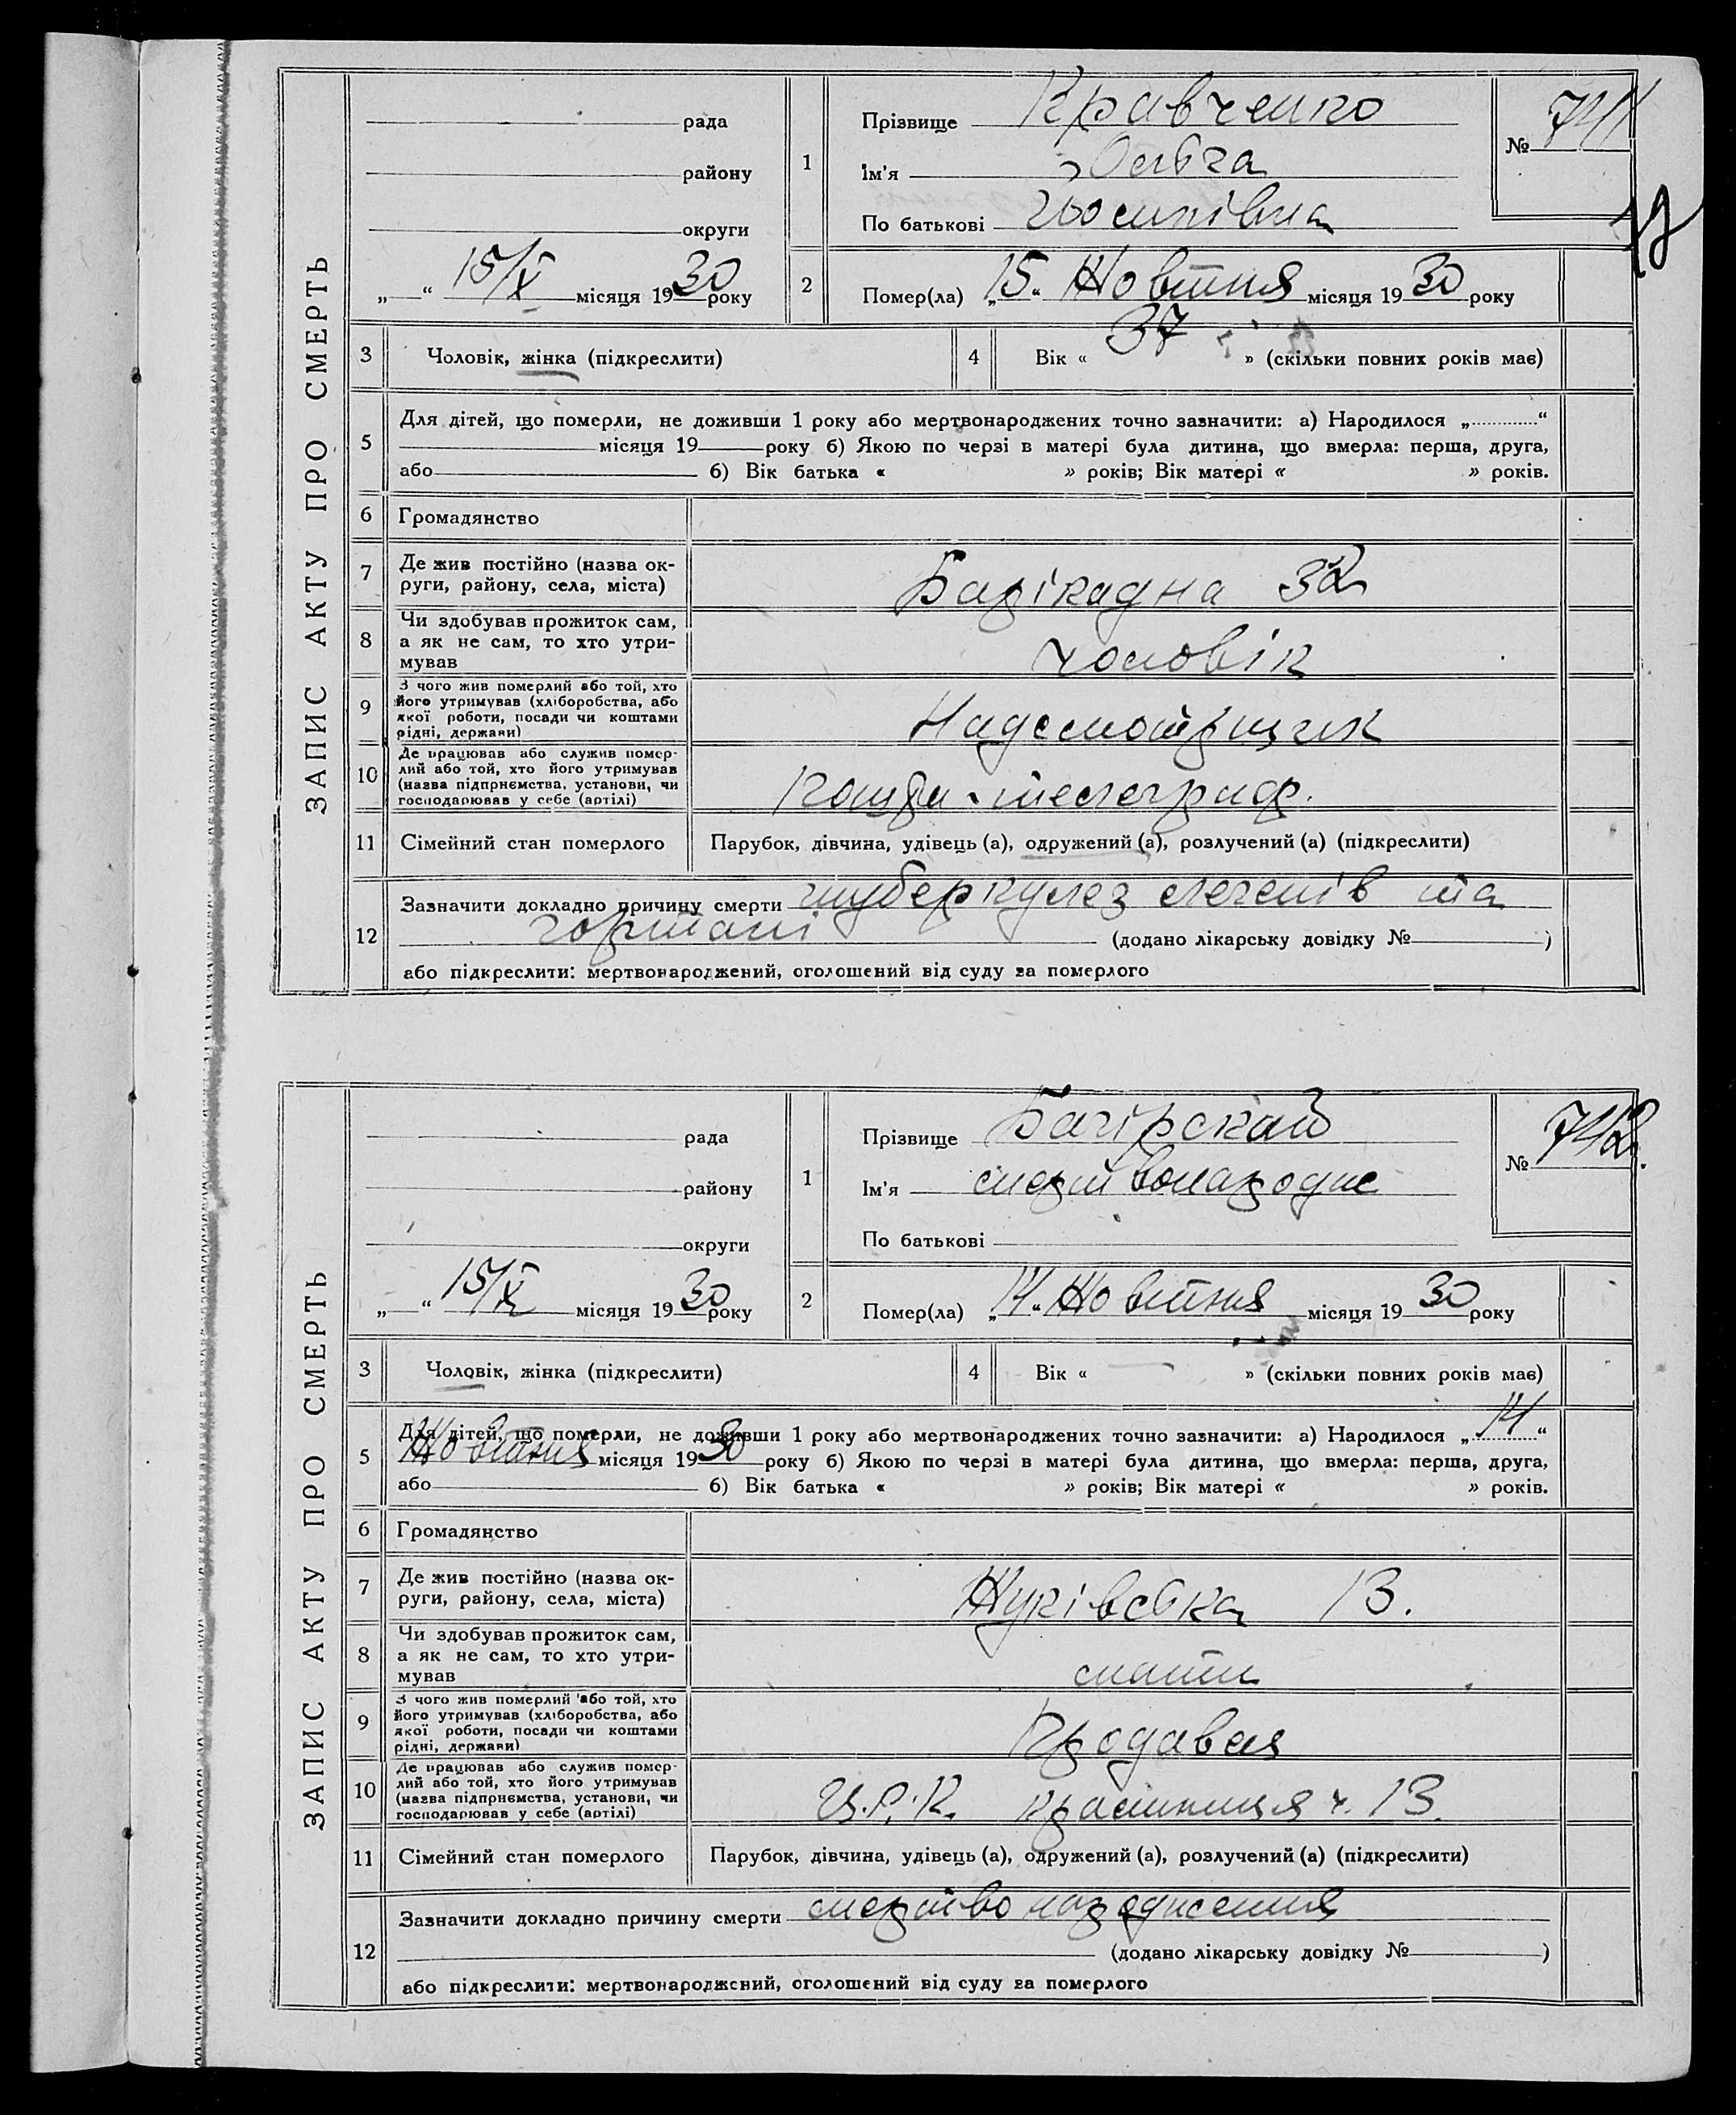 ЗАПИС АКТУ ПРО СМЕРТЬ
рада
району
округи
„ “ 15/X місяця 1930 року
1
Прізвище Кравченко
Ім'я Ольга
По батькові Йосипівна
№ 741
2
Помер(ла) „15“ Жовтня місяця 1930 року
3
Чоловік, жінка (підкреслити)
4
Вік « 37 » (скільки повних років має)
5
Для дітей, що померли, не доживши 1 року або мертвонароджених точно зазначити: а) Народилося „ “
місяця 19 року б) Якою по черзі в матері була дитина, що вмерла: перша, друга,
або б) Вік батька « » років; Вік матері « » років.
6
Громадянство
7
Де жив постійно (назва ок-
руги, району, села, міста)
Барікадна 32
8
Чи здобував прожиток сам,
а як не сам, то хто утри-
мував
чоловік
9
З чого жив померлий або той, хто
його утримував (хліборобства, або
якої роботи, посади чи коштами
рідні, держави)
Надсмотрщик
10
Де працював або служив помер-
лий або той, хто його утримував
(назва підприємства, установи, чи
господарював у себе (артілі)
телеграф.
11
Сімейний стан померлого
Парубок, дівчина, удівець (а), одружений (а), розлучений (а) (підкреслити)
12
Зазначити докладно причину смерти туберкулез легенів та
гортані (додано лікарську довідку № )
або підкреслити: мертвонароджений, оголошений від суду за померлого
ЗАПИС АКТУ ПРО СМЕРТЬ
рада
району
округи
„ “ 15/X місяця 1930 року
1
Прізвище Багірский
Ім'я мертвонародже
По батькові
№ 742.
2
Помер(ла) „14“ Жовтня місяця 1930 року
3
Чоловік, жінка (підкреслити)
4
Вік « — » (скільки повних років має)
5
Для дітей, що померли, не доживши 1 року або мертвонароджених точно зазначити: а) Народилося „14“
Жовтня місяця 1930 року б) Якою по черзі в матері була дитина, що вмерла: перша, друга,
або б) Вік батька « » років; Вік матері « » років.
6
Громадянство
7
Де жив постійно (назва ок-
руги, району, села, міста)
Жуківська 13.
8
Чи здобував прожиток сам,
а як не сам, то хто утри-
мував
мати
9
З чого жив померлий або той, хто
його утримував (хліборобства, або
якої роботи, посади чи коштами
рідні, держави)
Продавця
10
Де працював або служив помер-
лий або той, хто його утримував
(назва підприємства, установи, чи
господарював у себе (артілі)
Ц.Р.К. крамниця ч. 13.
11
Сімейний стан померлого
Парубок, дівчина, удівець (а), одружений (а), розлучений (а) (підкреслити)
12
Зазначити докладно причину смерти мертвонародження
(додано лікарську довідку № )
або підкреслити: мертвонароджений, оголошений від суду за померлого